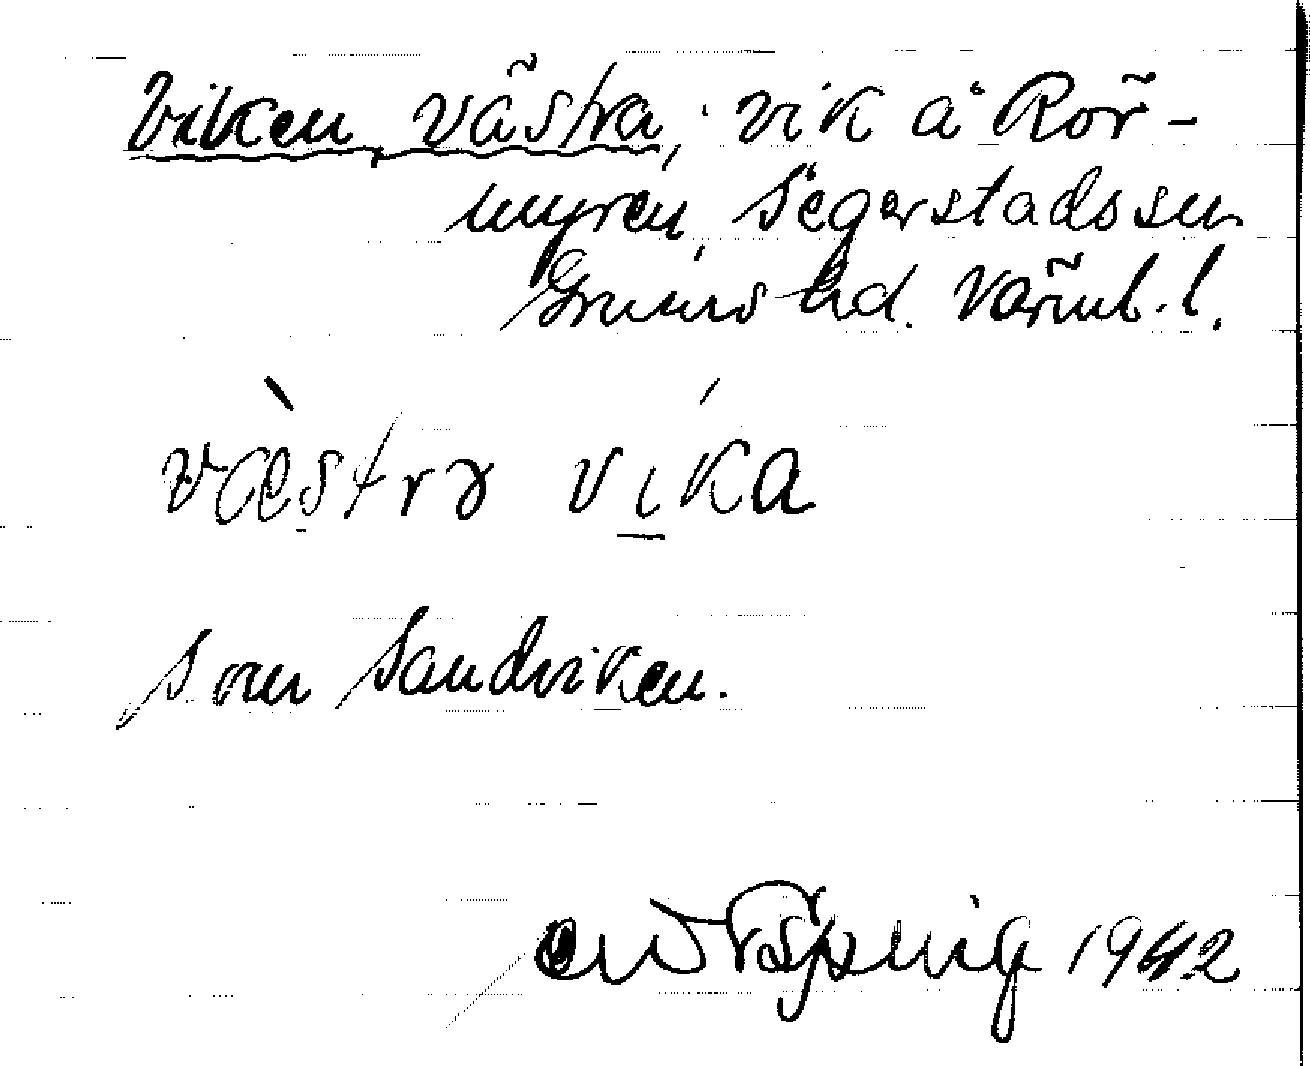 Viken, västra, vik å Rör-
myren, Segerstads sn
Grums hd. Värml. l.
væstrə vika
som Sandviken.
1942